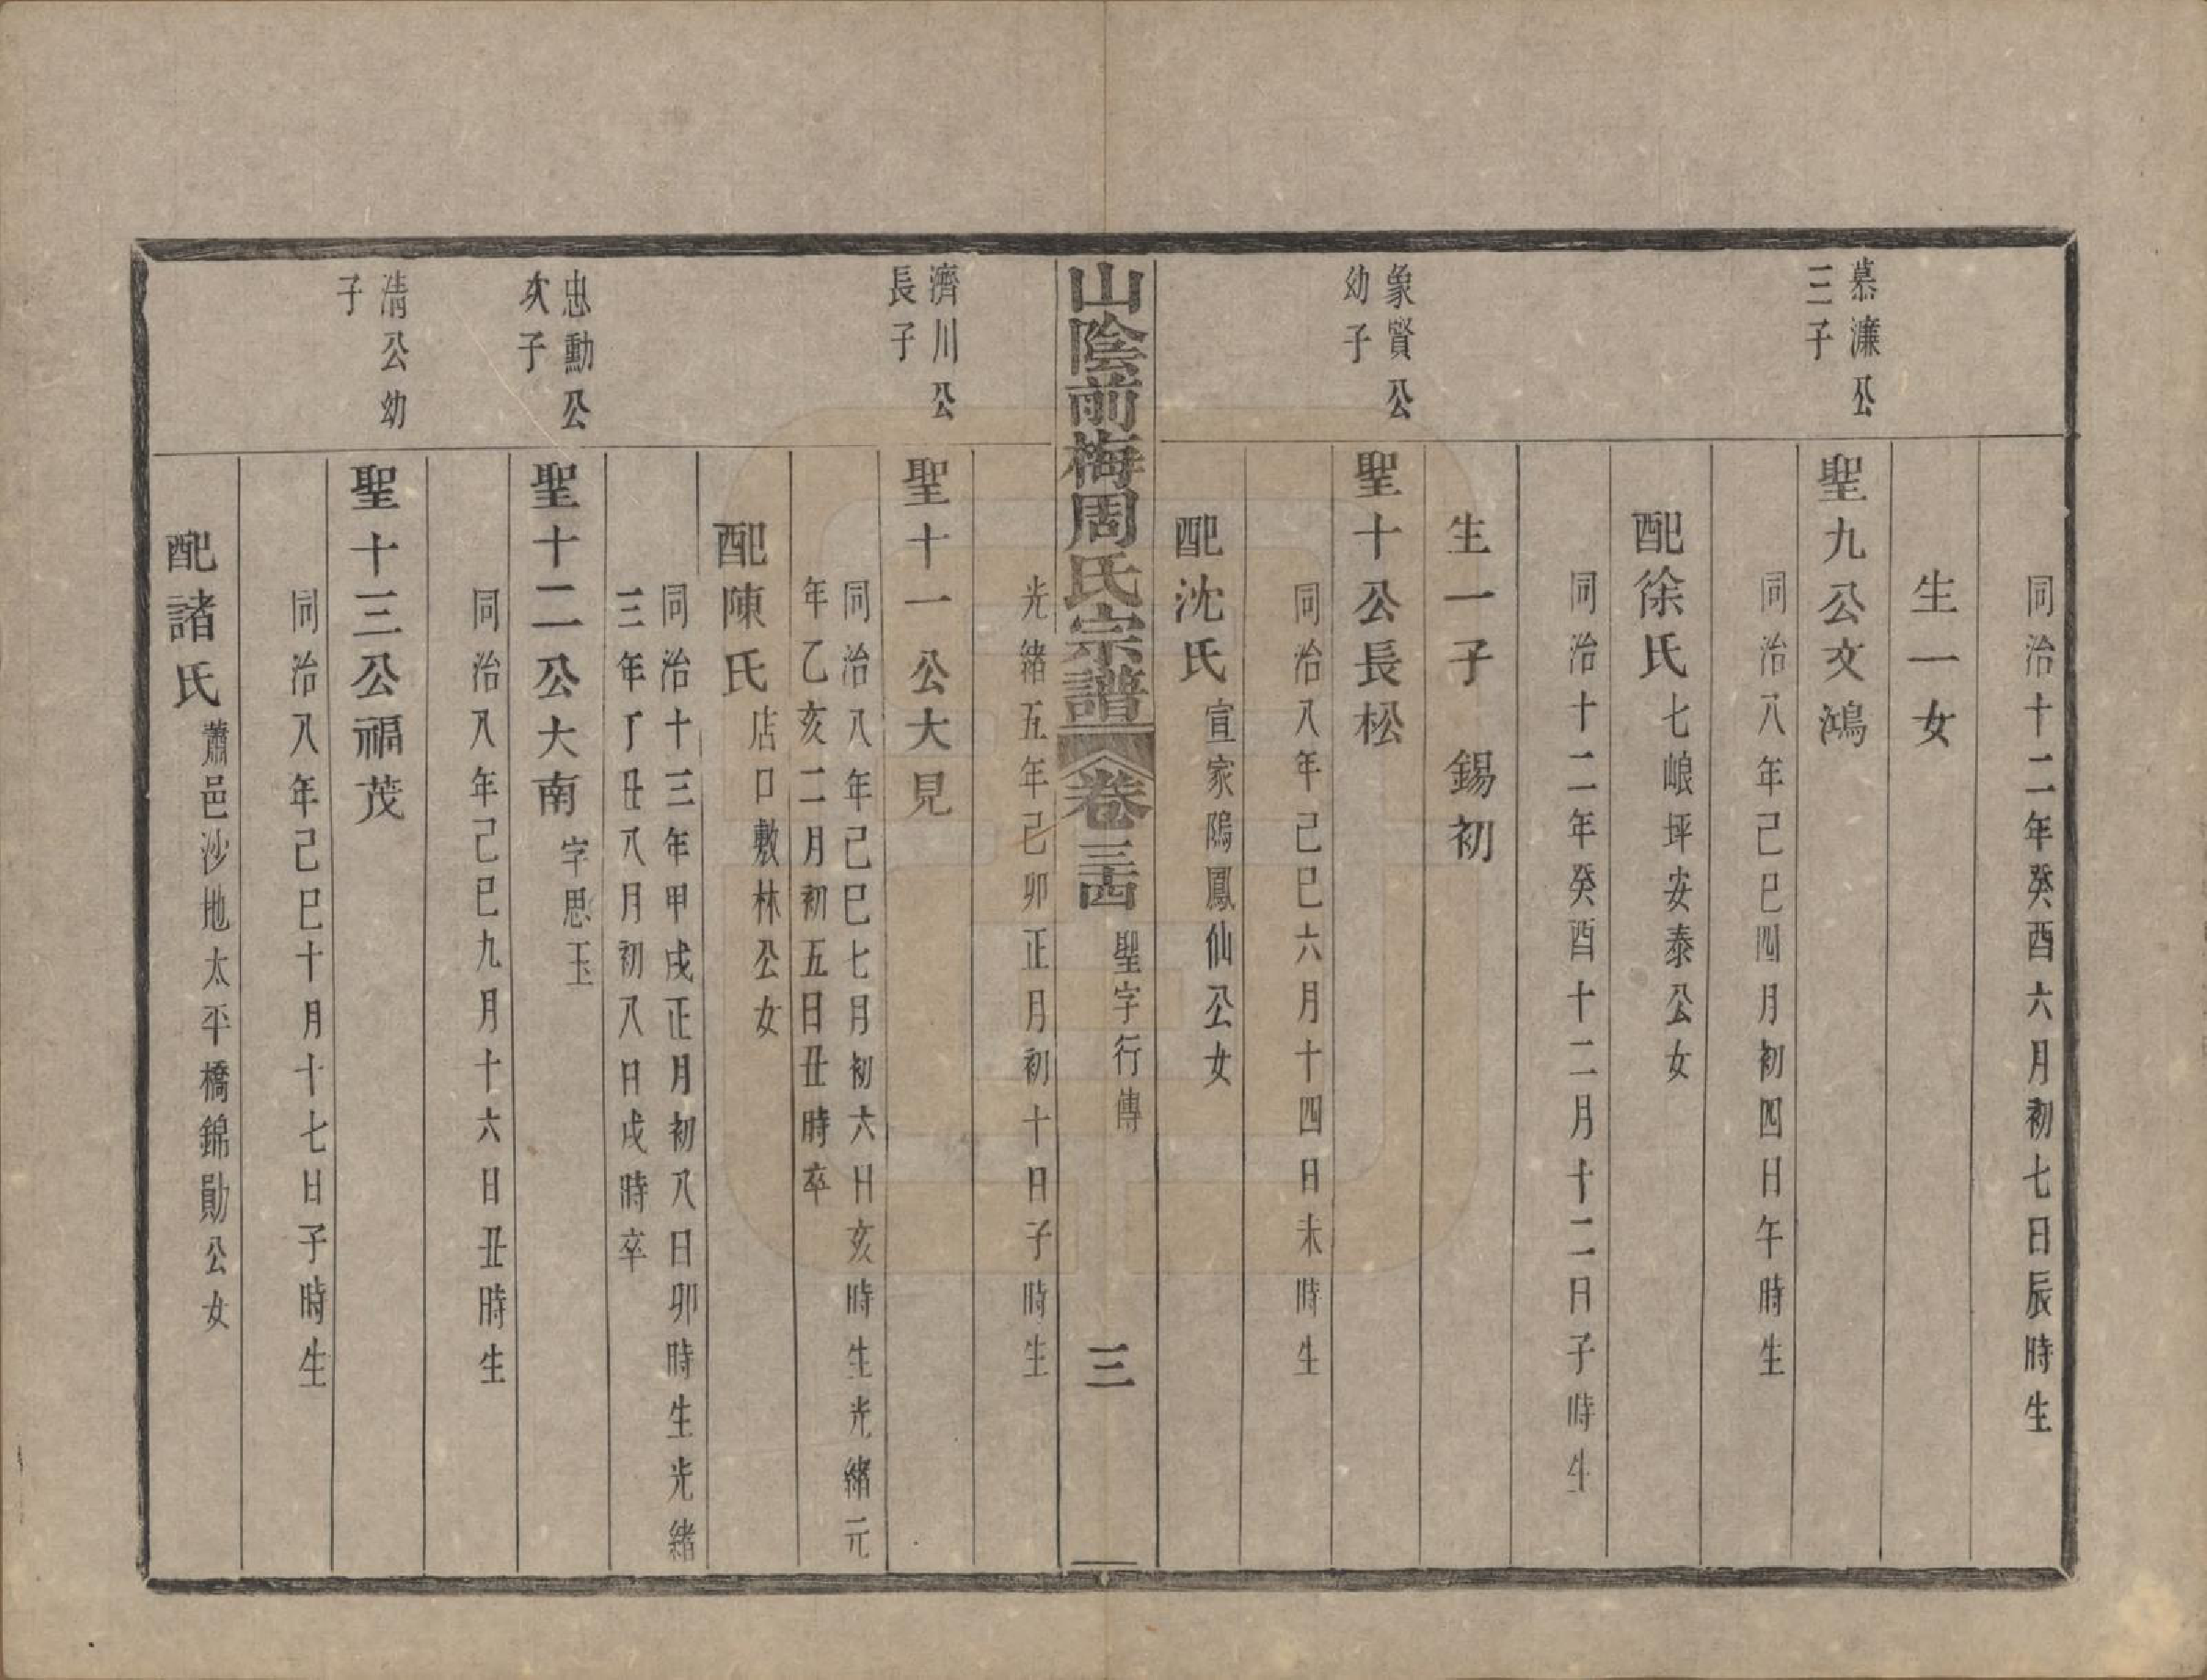 同治十二年癸酉六月初七日辰時生
生一女
慕濂公
三子
聖九公文鴻
同治八年己巳四月初四日午時生
配徐氏七崀坪安泰公女
同治十二年癸酉十二月十二日子時生
生一子 錫初
象賢公
幼子
聖十公長松
同治八年己巳六月十四日未時生
配沈氏宣家隖鳳仙公女
山陰前梅周氏宗譜 卷三四 聖字行傳 三
光緒五年己卯正月初十日子時生
濟川公
長子
聖十一公大見
同治八年己巳七月初六日亥時生光緒元
年乙亥二月初五日丑時卒
配陳氏店口敷林公女
同治十三年甲戌正月初八日卯時生光緒
三年丁丑八月初八日戌時卒
忠勳公
次子
聖十二公大南字思玉
同治八年己巳九月十六日丑時生
清公幼
子
聖十三公福茂
同治八年己巳十月十七日子時生
配諸氏蕭邑沙地太平橋錦勛公女